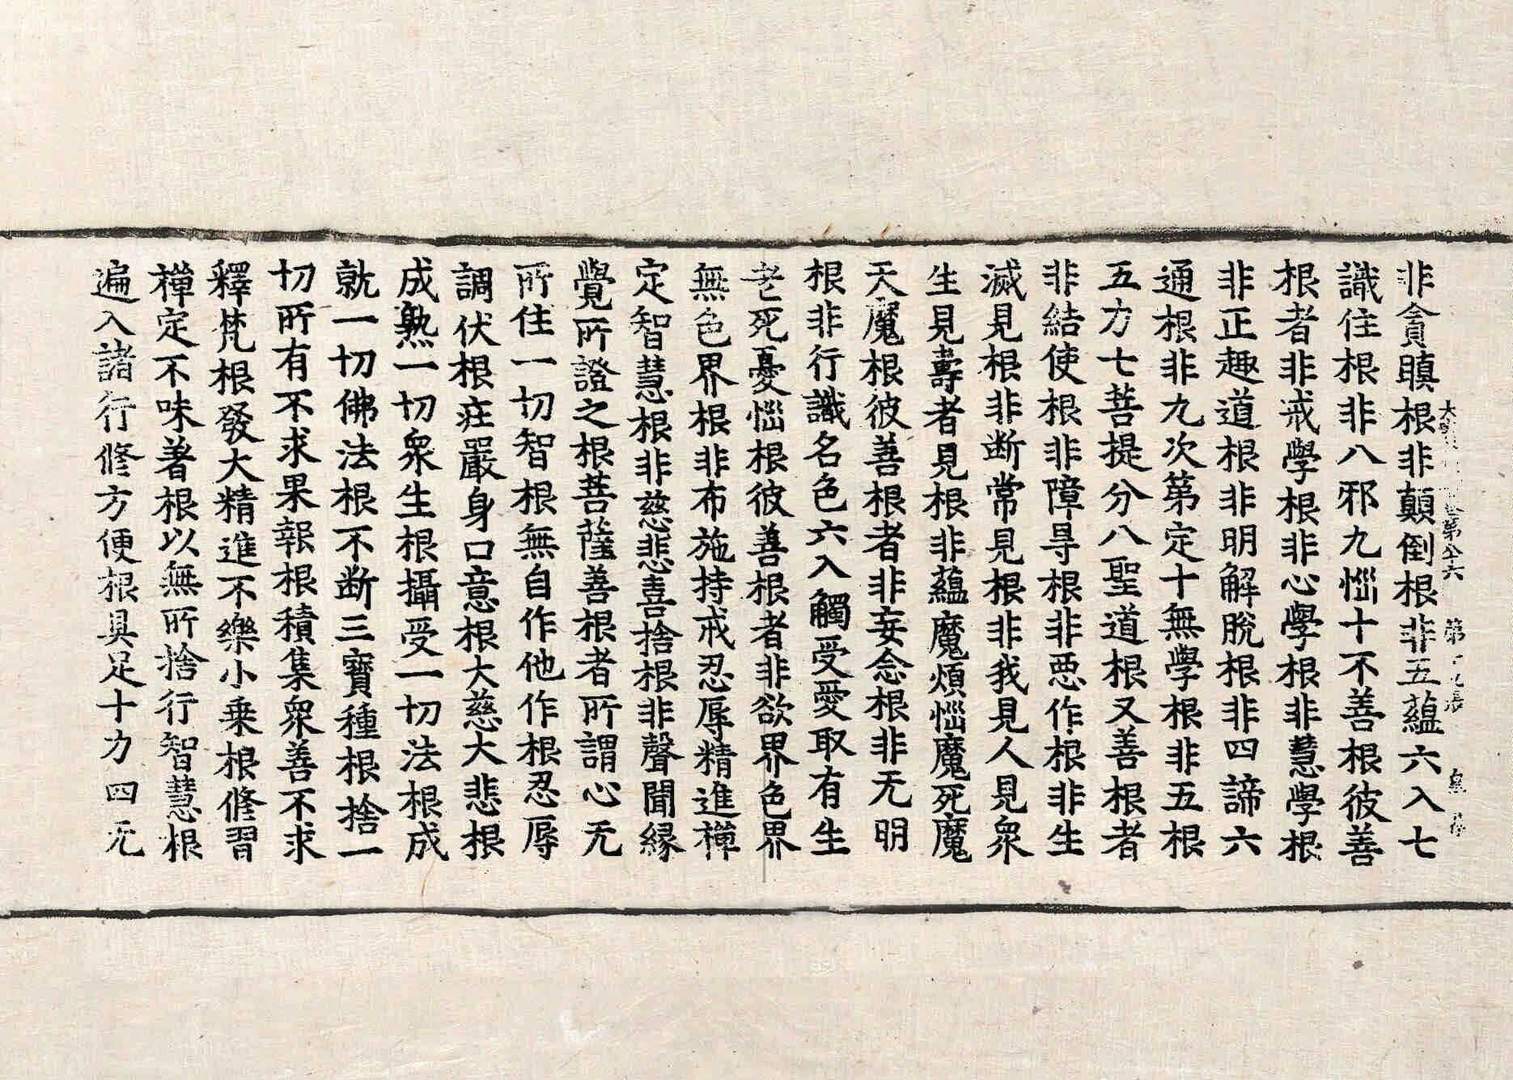 非貪瞋根非顛倒根非五蘊六入七
識住根非八邪九惱十不善根彼善
根者非戒學根非心學根非慧學根
非正趣道根非明解脫根非四諦六
通根非九次第定十無學根非五根
五力七菩提分八聖道根又善根者
非結使根非障㝵根非惡作根非生
滅見根非断常見根非我見人見衆
生見壽者見根非蘊魔煩惱魔死魔
天魔根彼善根者非妄念根非无明
根非行識名色六入觸受愛取有生
老死憂惱根彼善根者非欲界色界
無色界根非布施持戒忍辱精進禅
定智慧根非慈悲喜捨根非聲聞縁
覺所證之根菩薩善根者所謂心无
所住一切智根無自作他作根忍辱
調伏根莊嚴身口意根大慈大悲根
成熟一切衆生根攝受一切法根成
就一切佛法根不断三寶種根捨一
切所有不求果報根積集衆善不求
釋梵根發大精進不樂小乗根修習
禅定不味著根以無所捨行智慧根
遍入諸行修方便根具足十力四无